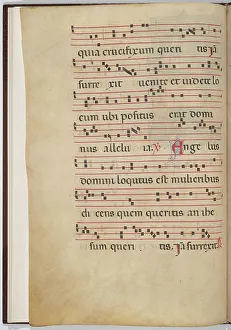 quia crucifixum queri tis Ja
surre xit venite et videte lo
cum ubi positus erat domi
nus allelu ia. Ange lus
domini loqutus est mulieribus
di cens quem queritis an ihe
sum queri tis. Ja surrexit